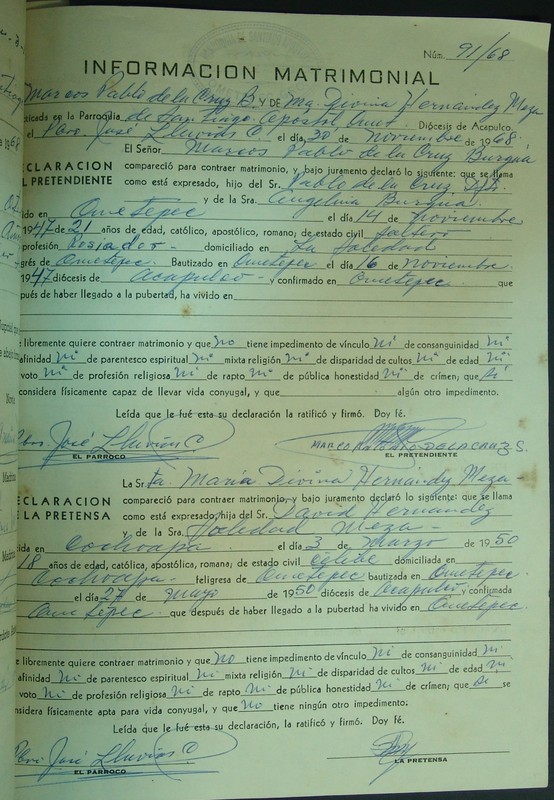 Núm. 91/68
INFORMACION MATRIMONIAL
Marcos Pablo de la Cruz B. Y DE Ma. Divina Hernández Meza
cticada en Parroquia de Santiago Apostol Diócesis de Acapulco.
el Pbro. José Lluvias C. el día 30 de Noviembre de 1968.
El Señor Marcos Pablo de la Cruz Burgua
ECLARACION compareció para contraer matrimonio, y bajo juramento declaró lo siguiente: que se llama
L PRETENDIENTE como está expresado, hijo del Sr. Pablo de la Cruz
y de la Sra. Angelina Burgua.
ido en Ometepec el día 14 de Noviembre
1947 de 21 años de edad, católico, apostólico, romano; de estado civil Soltero
profesión domiciliado en La Soledad
grés de Ometepec. Bautizado en Ometepec el día 16 de Noviembre
1947 diócesis de Acapulco - y confirmado en Ometepec. que
pués de haber llegado a la pubertad, ha vivido en
e libremente quiere contraer matrimonio y que no tiene impedimento de vínculo ni de consanguinidad ni
afinidad ni de parentesco espiritual ni mixta religión ni de disparidad de cultos ni de edad ni
voto ni de profesión religiosa ni de rapto ni de pública honestidad ni de crimen; que sí
considera físicamente capaz de llevar vida conyugal, y que algún otro impedimento.
Leída que le fué esta su declaración la ratificó y firmó. Doy fé.
Pbro. José Lluvias C.
EL PARROCO
EL PRETENDIENTE
La Srta. María Divina Hernández Meza -
ECLARACION compareció para contraer matrimonio, y bajo juramento declaró lo siguiente: que se llama
LA PRETENSA como está expresado: hija del Sr. David Hernandez
y de la Sra. Soledad Meza -
ida en Cochoapa el día 3 de Marzo de 1950
18 años de edad, católica, apostólica, romana; de estado civil Célibe domiciliada en
Cochoapa - feligresa de Ometepec bautizada en Ometepec
el día 27 de Mayo de 1950 diócesis de Acapulco y confirmada
Ometepec que después de haber llegado a la pubertad ha vivido en Ometepec.
e libremente quiere contraer matrimonio y que no tiene impedimento de vínculo ni de consanguinidad ni
afinidad ni de parentesco espiritual ni mixta religión ni de disparidad de cultos ni de edad ni
voto ni de profesión religiosa ni de rapto ni de pública honestidad ni de crimen; que se
nsidera físicamente apta para vida conyugal, y que no tiene ningún otro impedimento;
Leída que le fué esta su declaración, la ratificó y firmó. Doy fé.
Pbro. José Lluvias C.
EL PARROCO
LA PRETENSA